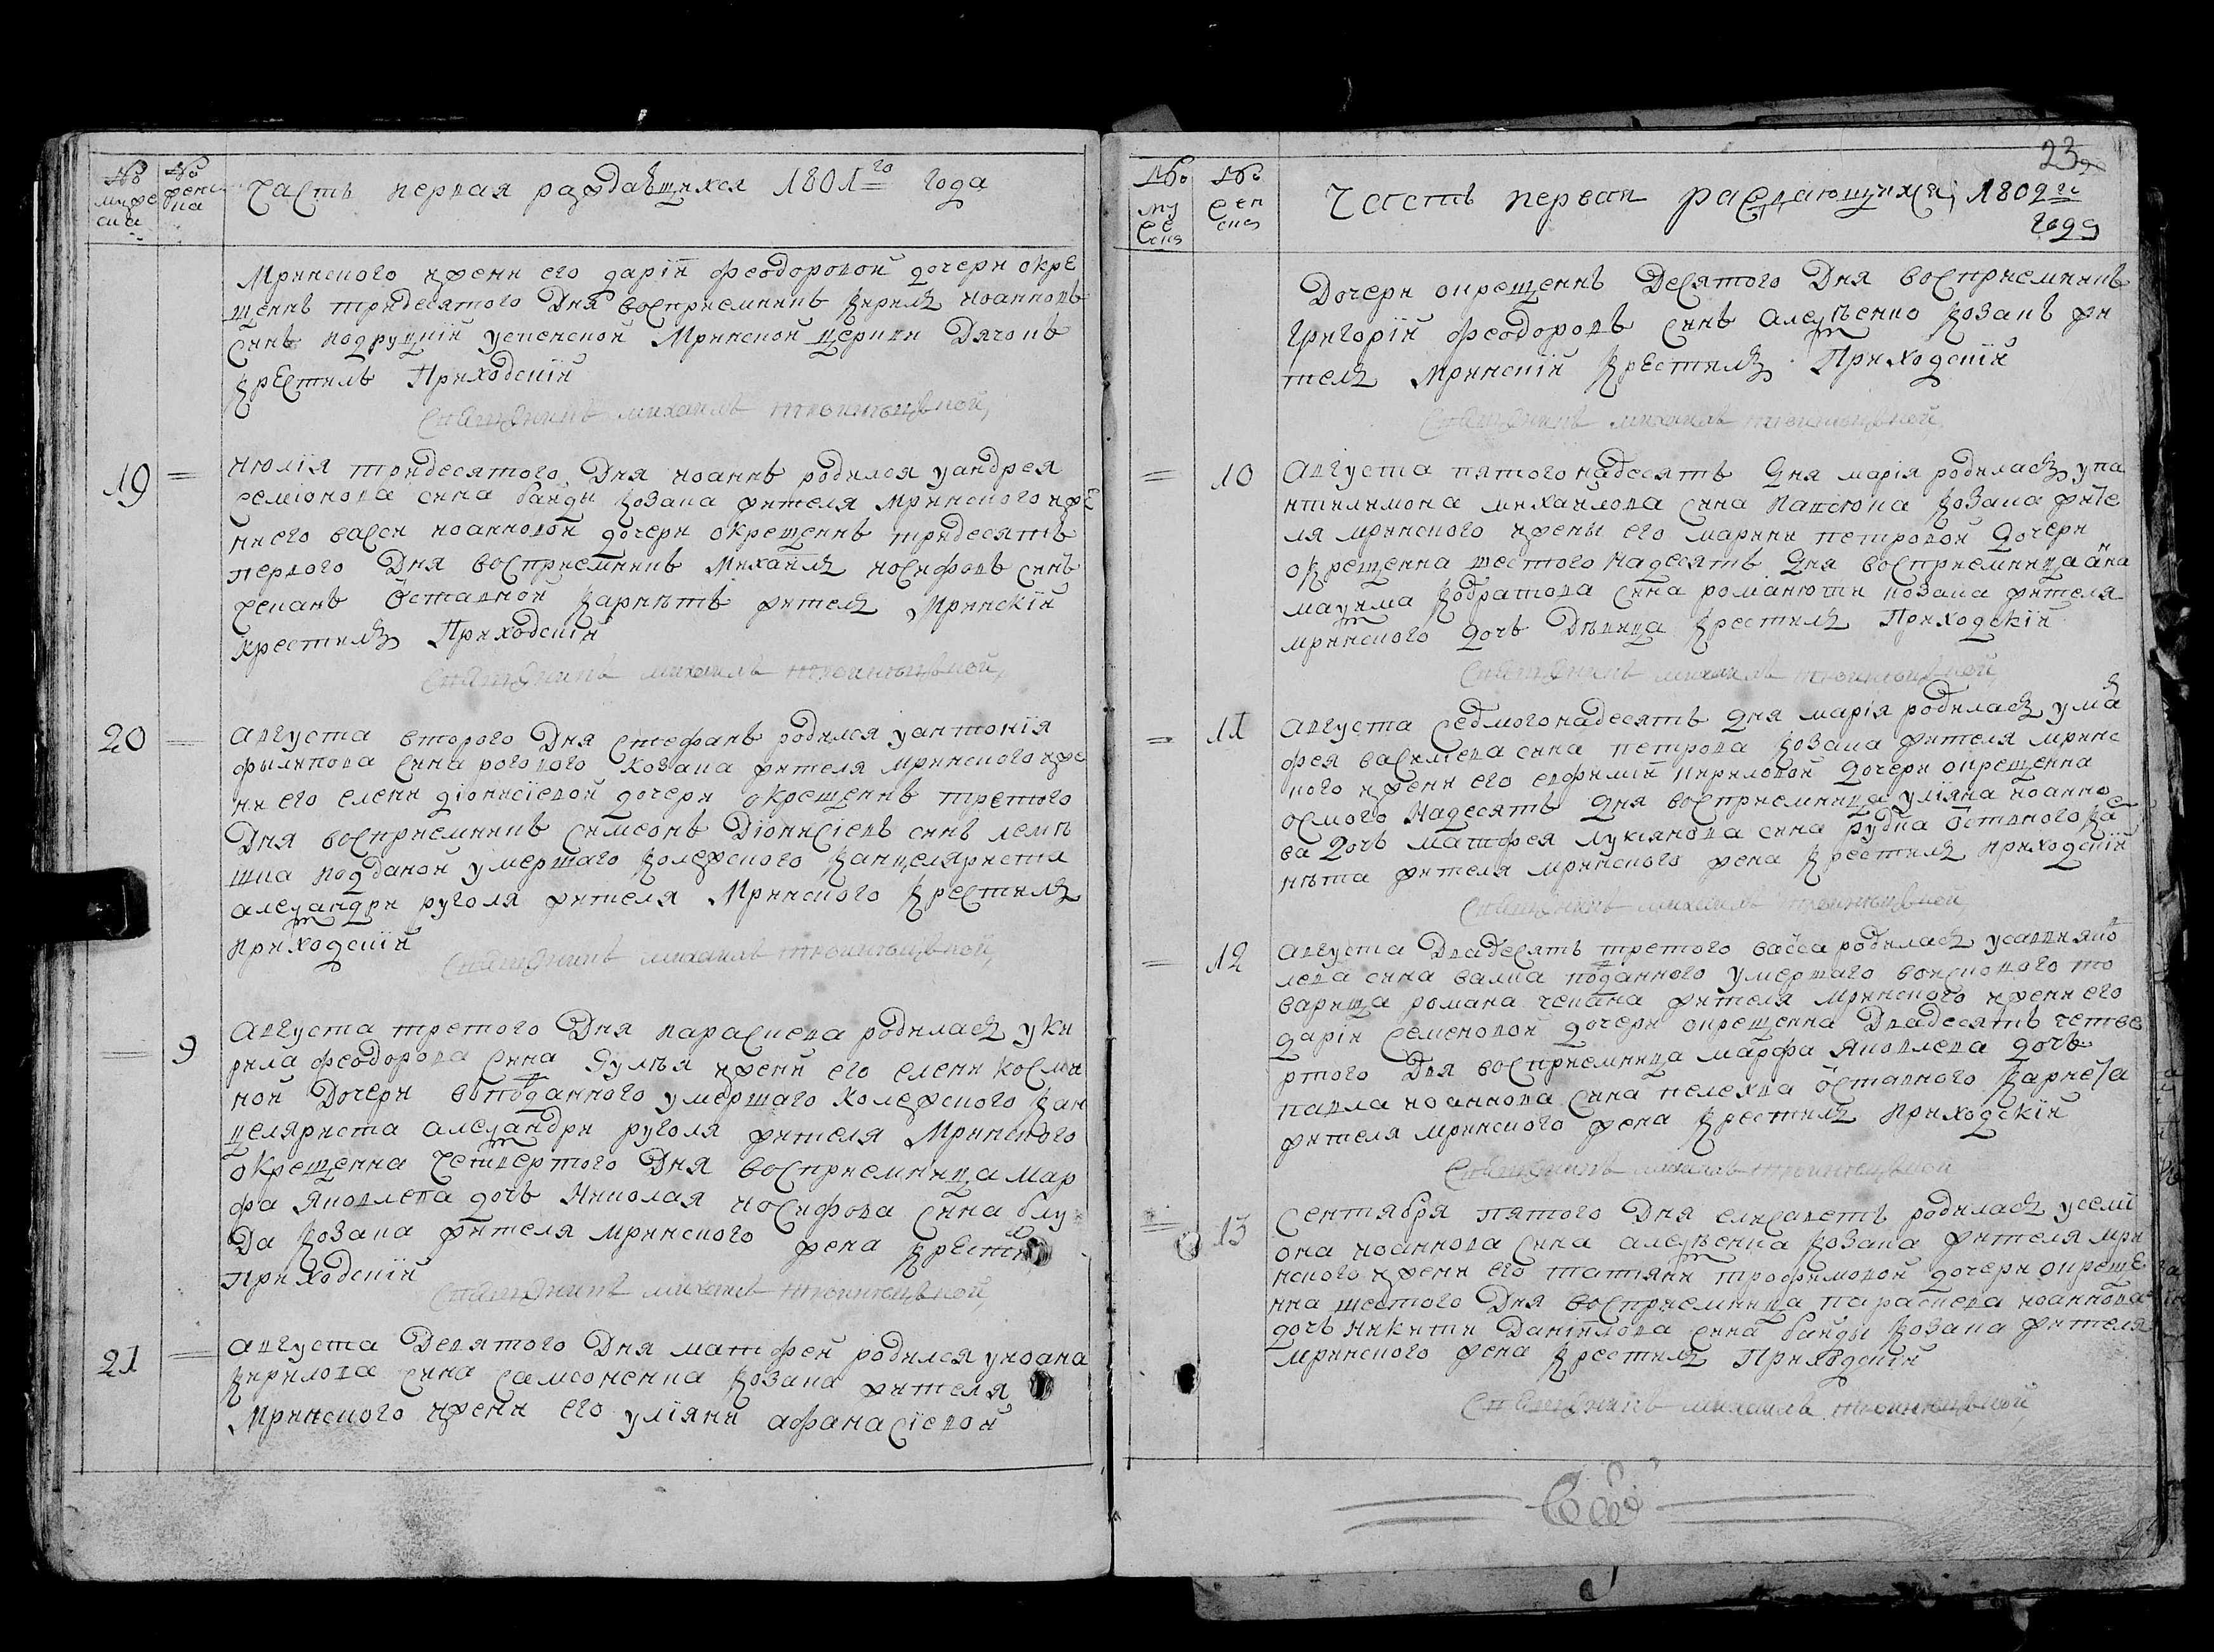 № муже ска
№ женс ка
Часть первая раждающихся 1801го года
Мринского ижени его дарїи феодоровой дочери окре
щеннъ тридесятого Дня восприемникъ Кирилъ иоанновъ
синъ подруцкїй успенской Мринской церкви Дячокъ
Крестилъ Приходскїй
Священникъ михаилъ
19 =
июлїя тридесятого Дня иоаннъ родился уандрея
семїонова сина байды козака жителя Мринского иже
ни его васси иоанновой дочери окрещеннъ тридесятъ
первого Дня восприемникъ Михаилъ иосифовъ синъ
чепакъ Оставной Карнѣтъ жителъ Мринскїй
крестилъ Приходскїй
Священникъ михаилъ
20 =
Августа второго Дня стефанъ родился уантонїя
филипова сина рогового козака жителя Мринского иже
ни его елени дїонисїевой дочери окрещеннъ третого
Дня восприемникъ симеонъ Дїонисїевъ синъ лемѣ
шка подданой умершаго колежского Канцеляриста
александри руголя жителя Мринского Крестилъ
приходскїй
Священникъ михаилъ
= 9
Августа третого Дня параскева родиласъ уки
рила феодорова сина ижени его елени косми
ной Дочери подданного умершаго колежского Кан
целяриста александри руголя жителя Мринского
окрещенна четвертого Дня восприемница мар
фа яковлева дочъ Николая иосифова сина блу
да козака жителя мринского жена Крести
Приходскїй
Священникъ михаилъ
21 =
августа Девятого Дня матфей родился уиоана
Кирилова сина самсоненка козака жителя
Мринского ижени его улїяни афанасїевой
23
№ му жеска
№ жен ска
Часть первая раждающихся 1802го
году
Дочери окрещеннъ Десятого Дня восприемникъ
григорїй феодоровъ синъ алексѣенко козакъ жи
телъ мринскїй Крестилъ Приходскїй
Священникъ михаилъ
= 10
Августа пятогонадесять Дня марїя родиласъ упа
нтилимона михаилова сина павсюка козака жите
ля мринского ижены его марини петровой дочери
окрещенна шестого надесять Дня восприемница анна
максима Кодратова сина романюти козака жителя
мринского дочъ Дѣвица Крестилъ Приходскїй
Священникъ михаилъ
= 11
Августа седмогонадесять Дня марїя родиласъ ума
фея василева сина петрова козака жителя мринс
кого ижени его евфимїи кириловой дочери окрещенна
осмого надесять Дня восприемница улїяна иоанно
ва дочъ матфея лукїянова сина рудка оставного Ка
нѣта жителя мринского жена Крестилъ приходскїй
Священникъ михаилъ
= 12
августа двадесять третого васса родиласъ усавви яко
лева сина валка подданного умершаго войскового то
варища романа чепака жителя мринского ижени его
дарїи семеновой дочери окрещенна Двадесять четве
ртого Дня восприемница марфа яковлева дочъ
павла иоаннова сина пелехва Оставного Карнета
жителя мринского жена Крестилъ приходскїй
Священникъ михаилъ
= 13
Сентября пятого Дня елисаветъ родиласъ усемї
она иоаннова сина алексѣенка козака жителя мри
нского ижени его татїяни трофимовой дочери окреще
нна шестого Дня восприемница параскева иоаннова
дочъ никити данїилова сина байды козака жителя
Мринского жена Крестилъ Приходскїй
Священникъ михаилъ